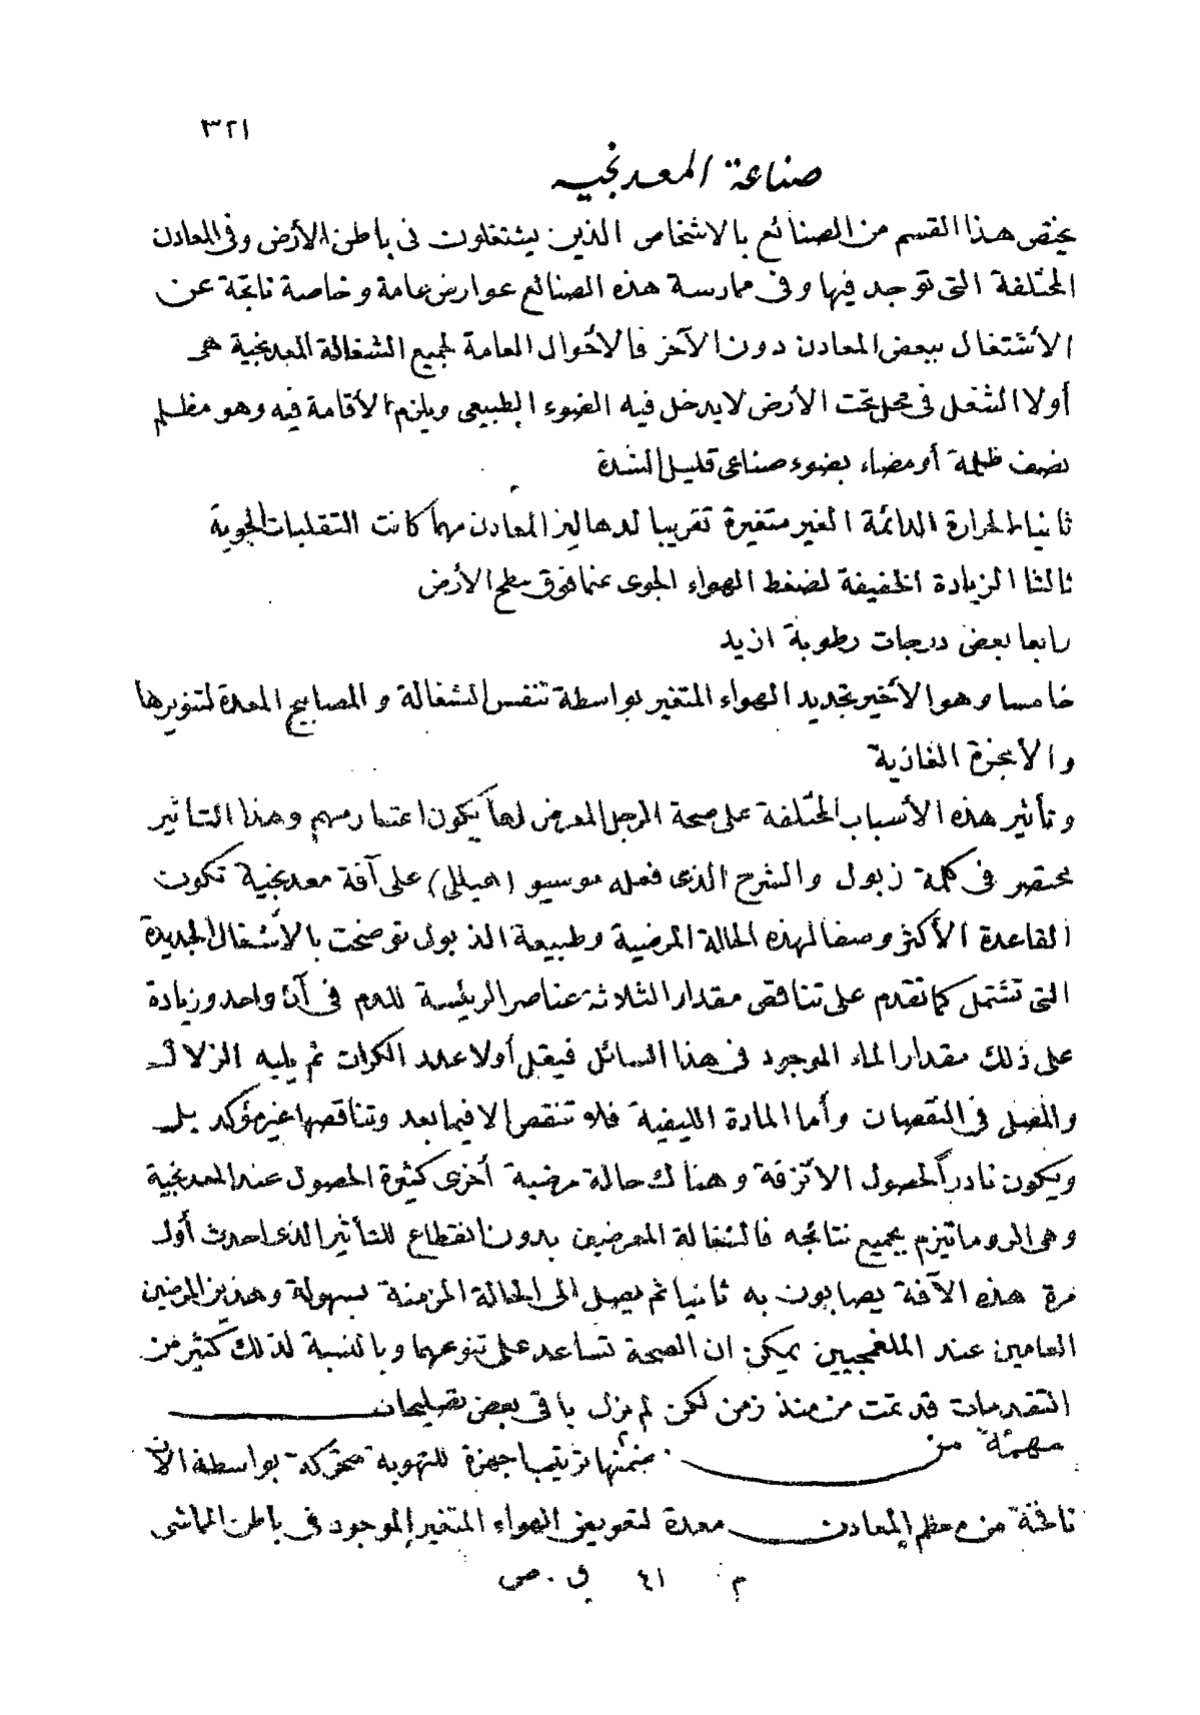 ٣٢١
صناعة المعدنجيه
يختص هذا القسم من الصنائع بالاشخاص الذين يشتغلون فى باطن الأرض وفى المعادن
المختلفة التى توجد فيها وفى ممارسة هذه الصنائع عوارض عامة وخاصة ناتجة عن
الأشتغال ببعض المعادن دون الآخر فالأحوال العامة لجميع الشغالة المعدنجية هى
أولا الشغل فى محل تحت الأرض لا يدخل فيه الضوء الطبيعى ويلزم الأقامة فيه وهو مظلم
نصف ظلمة أو مضاء بضوء صناعى قليل الشدة
ثانيا الحرارة الدائمة الغير متغيرة تقريبا لدهاليز المعادن مهما كانت التقلبات الجوية
ثالثا الزيادة الخفيفة لضغط الهواء الجوى عنما فوق سطح الأرض
رابعا بعض درجات رطوبة ازيد
خامسا وهو الأخير تجديد الهواء المتغير بواسطة تنفس الشغالة والمصابيح المعدة لتنويرها
والأبخرة الغازية
وتأثير هذه الأسباب المختلفة على صحة الرجل المعرض لها يكون اعتبار مهم وهذا التأثير
مختصر فى كلمة ذبول والشرح الذى فعله موسيو (هيللى) على آفة معدنجية تكون
القاعدة الأكثر وصفا لهذه الحالة المرضية وطبيعة الذبول توضحت بالأشغال الجديدة
التى تشتمل كما تقدم على تناقص مقدار الثلاثة عناصر الرئيسة للدم فى آن واحد وزيادة
على ذلك مقدار الماء الموجود فى هذا السائل فيقل أولا عدد الكرات ثم يليه الزلال
والمصل فى النقصان وأما المادة الليفية فلا تنقص الا فيما بعد وتناقصها غير مؤكد بل
ويكون نادر الحصول الا نزفة وهناك حالة مرضية أخرى كثيرة الحصول عند المعدنجية
وهى الروماتيزم بجميع نتائجه فالشغالة المعرضين بدون انقطاع للتأثير الذى احدث أول
مرة هذه الآفة يصابون به ثانيا ثم يصل الى الحالة المزمنة بسهولة وهذين المرضين
العامين عند الملغمجيين يمكن ان الصحة تساعد على تنوعهما وبالنسبة لذلك كثير من
التقدمات قد تمت من منذ زمن لكن لم يزل باقى بعض تصليحات
مهمّة من ضمنها ترتيب اجهزة للتهوية متحركة بواسطة الآن
نافخة من معظم المعادن معدة لتعويض الهواء المتغير الموجود فى باطن المماشى
م ٤١ ق . ص